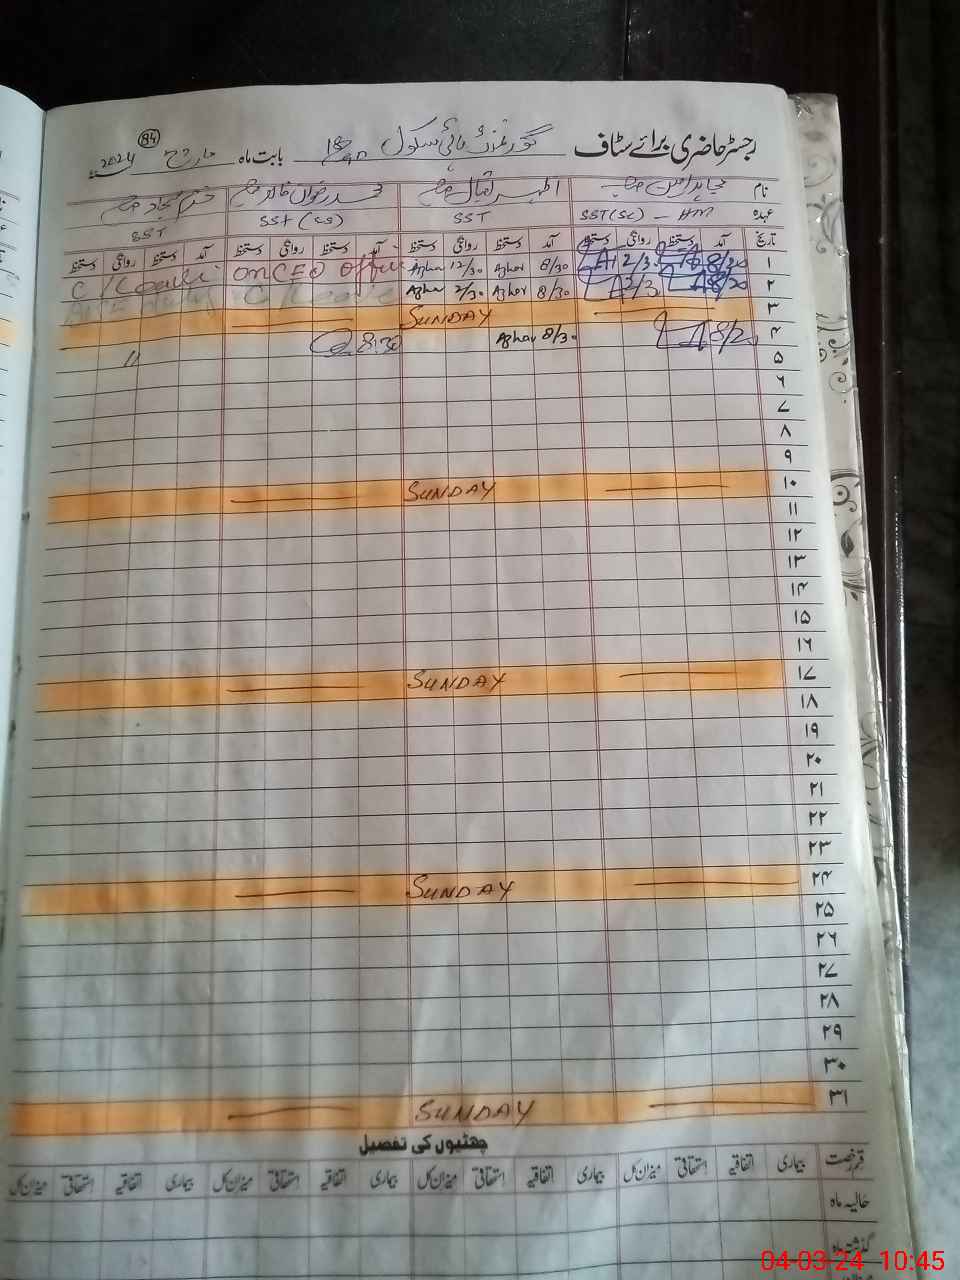 84
رجسٹر حاضری برائے سٹاف گورنمنٹ ہائی سکول بابت ماہ مارچ 2024
نام اظہر اقبال
عہدہ SST(SC) - HM SST SST (CS) SST
تاریخ آمد دستخط روانگی دستخط آمد دستخط روانگی دستخط آمد دستخط روانگی دستخط آمد دستخط روانگی دستخط
۱ 8/30 2/30 8/30 Azhar 12/30 Azhar on CEO office C/Leave
۲ 8/30 2/30 8/30 Azhar 2/30 Azhar C/Leave
۳ SUNDAY
۴ 8/30 Azhar 8:30
۵ 11
۶
۷
۸
۹
۱۰ SUNDAY
۱۱
۱۲
۱۳
۱۴
۱۵
۱۶
۱۷ SUNDAY
۱۸
۱۹
۲۰
۲۱
۲۲
۲۳
۲۴ SUNDAY
۲۵
۲۶
۲۷
۲۸
۲۹
۳۰
۳۱ SUNDAY
چھٹیوں کی تفصیل
قسم رخصت بیماری اتفاقیہ استحقاقی میزان کل بیماری اتفاقیہ استحقاقی میزان کل بیماری اتفاقیہ استحقاقی میزان کل بیماری اتفاقیہ استحقاقی میزان کل
حالیہ ماہ
گذشتہ ماہ
04-03-24 10:45